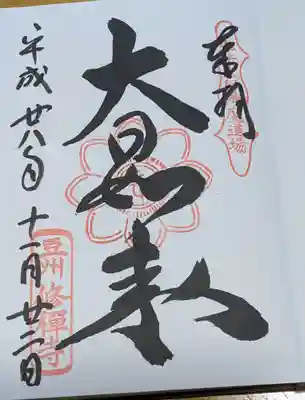 奉拝
大日如来
平成廿八年
十一月廿二日
豆州修禅寺